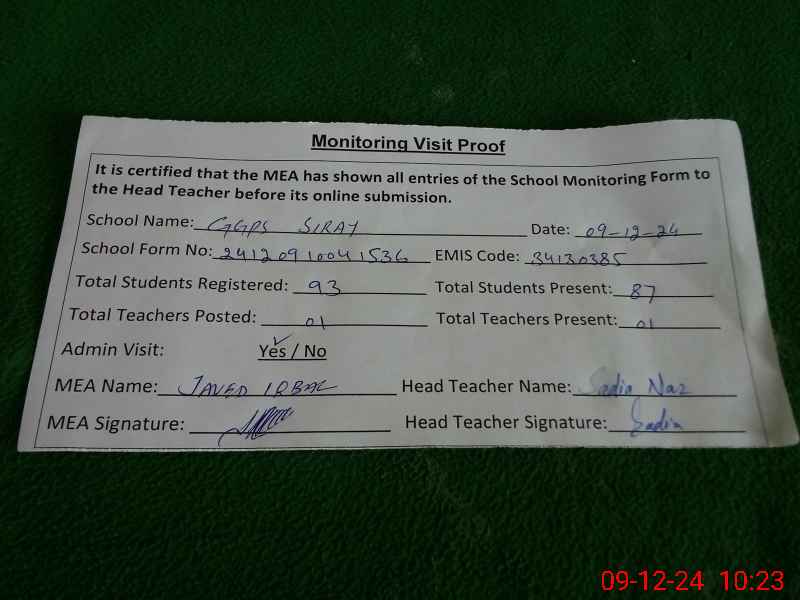 Monitoring Visit Proof
It is certified that the MEA has shown all entries of the School Monitoring Form to
the Head Teacher before its online submission.
School Name: GGPS SIRAY Date: 09-12-24
School Form No: 24120910041536 EMIS Code: 34130385
Total Students Registered: 93 Total Students Present: 87
Total Teachers Posted: 01 Total Teachers Present: 01
Admin Visit: Yes / No
MEA Name: JAVED IQBAL Head Teacher Name: Sadia Naz
MEA Signature: Head Teacher Signature: Sadia
09-12-24 10:23